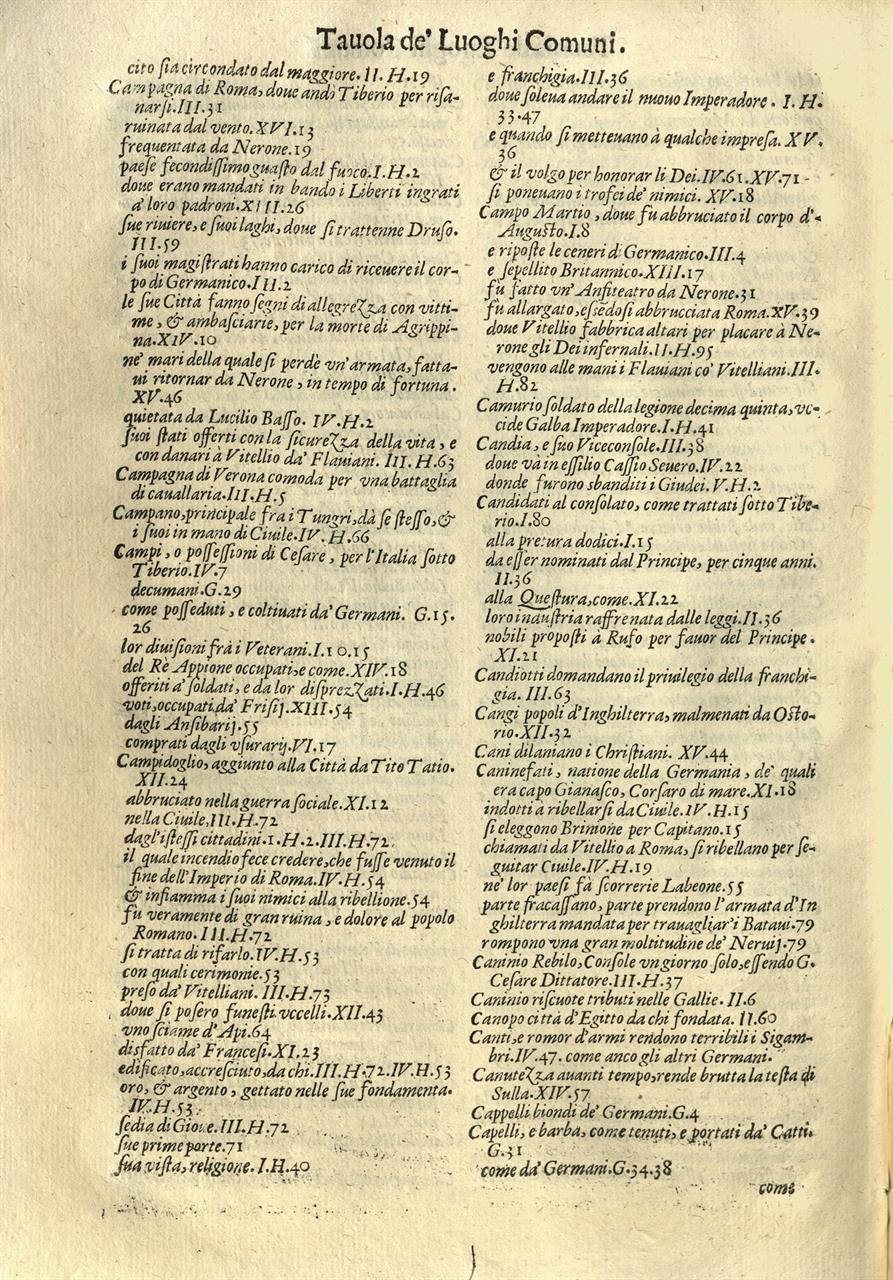 Tauola de' Luoghi Comuni.
cito sia circondato dal maggiore. II. H. 19
Campagna di Roma, doue andò Tiberio per risa-
narsi. III. 31
ruinata dal vento. XVI. 13
frequentata da Nerone. 19
paese fecondissimo guasto dal fuoco. I. H. 2
doue erano mandati in bando i Liberti ingrati
a' loro padroni. XIII. 26
sue riuiere, e suoi laghi, doue si trattenne Druso.
III. 59
i suoi magistrati hanno carico di riceuere il cor-
po di Germanico. III. 2
le sue Città fanno segni di allegrezza con vitti-
me, & ambasciarie, per la morte di Agrippi-
na. XIV. 10
ne' mari della quale si perdè vn'armata, fatta-
ui ritornar da Nerone, in tempo di fortuna.
XV. 46
quietata da Lucilio Basso. IV. H. 2
suoi stati offerti con la sicurezza della vita, e
con danari à Vitellio da' Flauiani. III. H. 63
Campagna di Verona comoda per vna battaglia
di cauallaria. III. H. 5
Campano, principale fra i Tungri, dà se stesso, &
i suoi in mano di Ciuile. IV. H. 66
Campi, o possessioni di Cesare, per l'Italia sotto
Tiberio. IV. 7
decumani. G. 29
come posseduti, e coltiuati da' Germani. G. 15.
26
lor diuisioni frà i Veterani. I. 10. 15
del Rè Appione occupati, e come. XIV. 18
offeriti a' soldati, e da lor disprezzati. I. H. 46
voti, occupati da' Frisij. XIII. 54
dagli Ansibarij. 55
comprati dagli vsurarij. VI. 17
Campidoglio, aggiunto alla Città da Tito Tatio.
XII. 24
abbruciato nella guerra sociale. XI. 12
nella Ciuile, III. H. 72
dagl'istessi cittadini. I. H. 2. III. H. 72
il quale incendio fece credere, che fusse venuto il
fine dell'Imperio di Roma. IV. H. 54
& infiamma i suoi nimici alla ribellione. 54
fù veramente di gran ruina, e dolore al popolo
Romano. III. H. 72
si tratta di rifarlo. IV. H. 53
con quali cerimonie. 53
preso da' Vitelliani. III. H. 73
doue si posero funesti vccelli. XII. 43
vno sciame d'Api. 64
disfatto da' Francesi. XI. 23
edificato, accresciuto, da chi. III. H. 72. IV. H. 53
oro, & argento, gettato nelle sue fondamenta.
IV. H. 53.
sedia di Gioue. III. H. 72
sue prime porte. 71
sua vista, religione. I. H. 40
e franchigia. III. 36
doue soleua andare il nuouo Imperadore. I. H.
33. 47
e quando si metteuano à qualche impresa. XV.
36
& il volgo per honorar li Dei. IV. 61. XV. 71
si poneuano i trofei de' nimici. XV. 18
Campo Martio, doue fu abbruciato il corpo d'-
Augusto. I. 8
e riposte le ceneri di Germanico. III. 4
e sepellito Britannico. XIII. 17
fù fatto vn'Anfiteatro da Nerone. 31
fu allargato, essedosi abbrucciata Roma. XV. 39
doue Vitellio fabbrica altari per placare à Ne-
rone gli Dei infernali. II. H. 95
vengono alle mani i Flauiani co' Vitelliani. III.
H. 82
Camurio soldato della legione decima quinta, vc-
cide Galba Imperadore. I. H. 41
Candia, e suo Viceconsole. III. 38
doue và in essilio Cassio Seuero. IV. 22
donde furono sbanditi i Giudei. V. H. 2
Candidati al consolato, come trattati sotto Tibe-
rio. I. 80
alla pretura dodici. I. 15
da esser nominati dal Principe, per cinque anni.
II. 36
alla Questura, come. XI. 22
loro industria raffrenata dalle leggi. II. 36
nobili proposti à Rufo per fauor del Principe.
XI. 21
Candiotti domandano il priuilegio della franchi-
gia. III. 63
Cangi popoli d'Inghilterra, malmenati da Osto-
rio. XII. 32
Cani dilaniano i Christiani. XV. 44
Caninefati, natione della Germania, de' quali
era capo Gianasco, Corsaro di mare. XI. 18
indotti à ribellarsi da Ciuile. IV. H. 15
si eleggono Brinione per Capitano. 15
chiamati da Vitellio a Roma, si ribellano per se-
guitar Ciuile. IV. H. 19
ne' lor paesi fà scorrerie Labeone. 55
parte fracassano, parte prendono l'armata d'In
ghilterra mandata per trauagliar'i Bataui. 79
rompono vna gran moltitudine de' Neruij. 79
Caninio Rebilo, Console vn giorno solo, essendo G.
Cesare Dittatore. III. H. 37
Caninio riscuote tributi nelle Gallie. II. 6
Canopo città d'Egitto da chi fondata. II. 60
Canti, e romor d'armi rendono terribili i Sigam-
bri. IV. 47. come anco gli altri Germani.
Canutezza auanti tempo, rende brutta la testa di
Sulla. XIV. 57
Cappelli biondi de' Germani. G. 4
Capelli, e barba, come tenuti, e portati da' Catti.
G. 31
come da' Germani. G. 34. 38
come